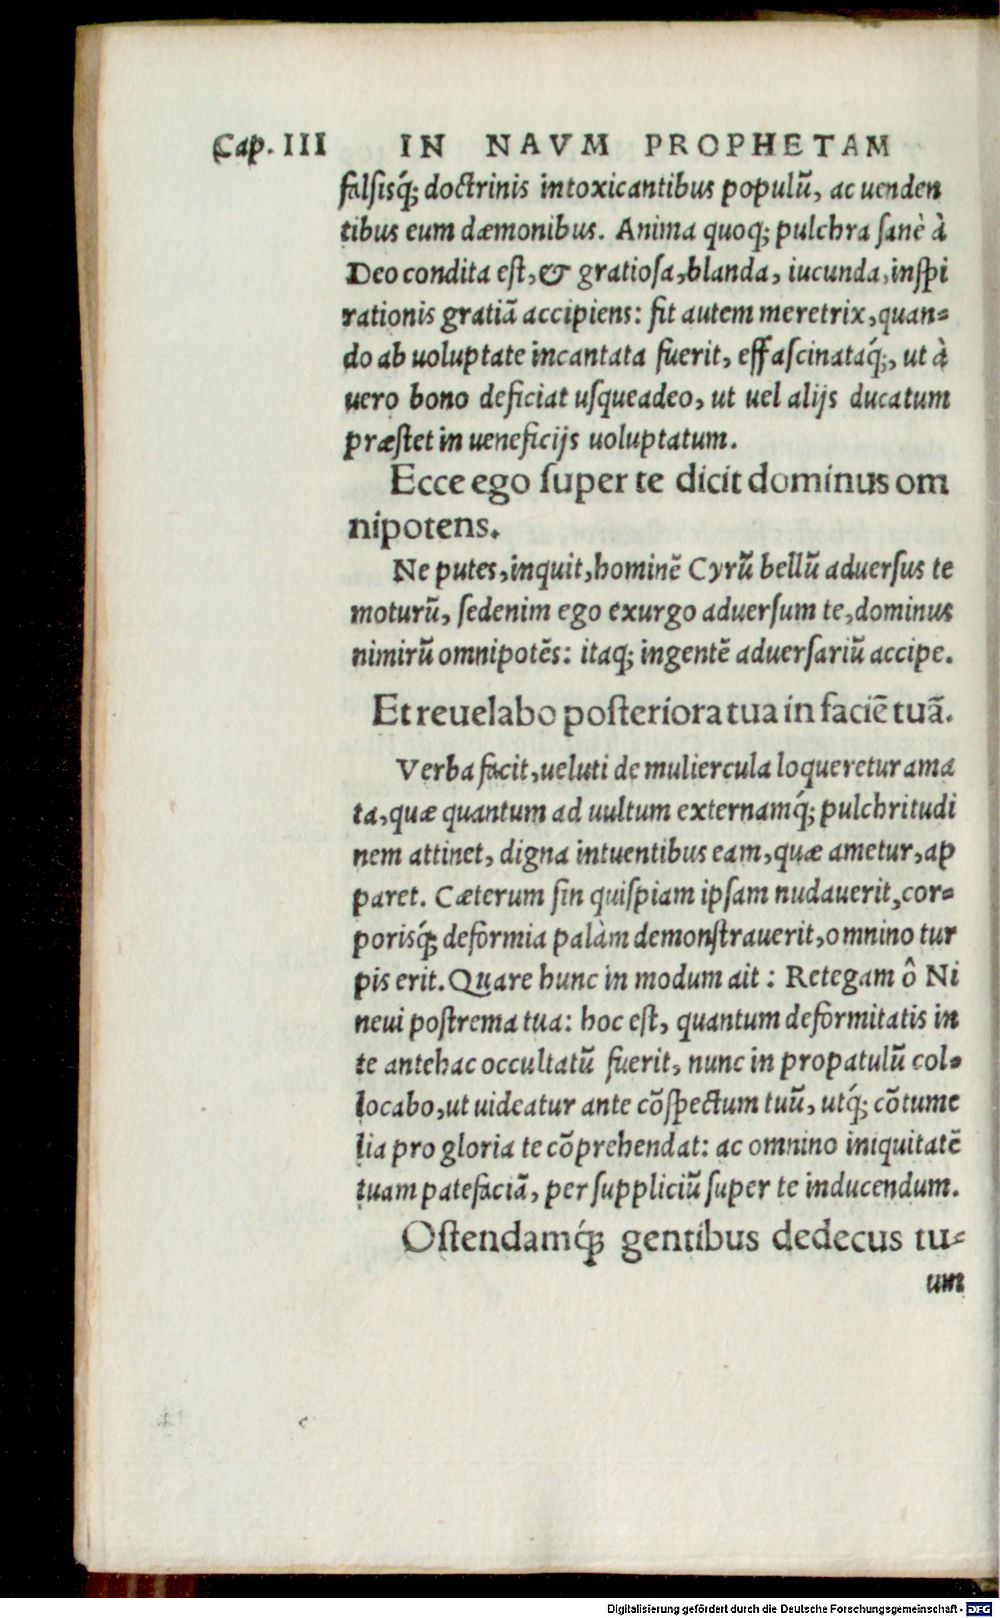 Cap. III IN NAVM PROPHETAM
falsisq́; doctrinis intoxicantibus populũ, ac uenden
tibus eum dæmonibus. Anima quoq; pulchra sanè à
Deo condita est, & gratiosa, blanda, iucunda, inspi
rationis gratiã accipiens: fit autem meretrix, quan-
do ab uoluptate incantata fuerit, effascinataq́;, ut à
uero bono deficiat usqueadeo, ut uel alijs ducatum
præstet in ueneficijs uoluptatum.
Ecce ego super te dicit dominus om
nipotens.
Ne putes, inquit, hominẽ Cyrũ bellũ aduersus te
moturũ, sedenim ego exurgo aduersum te, dominus
nimirũ omnipotẽs: itaq; ingentẽ aduersariũ accipe.
Et reuelabo posteriora tua in faciẽ tuã.
Verba facit, ueluti de muliercula loqueretur ama
ta, quæ quantum ad uultum externamq́; pulchritudi
nem attinet, digna intuentibus eam, quæ ametur, ap
paret. Cæterum sin quispiam ipsam nudauerit, cor-
porisq́; deformia palàm demonstrauerit, omnino tur
pis erit. Quare hunc in modum ait: Retegam ô Ni
neui postrema tua: hoc est, quantum deformitatis in
te antehac occultatũ fuerit, nunc in propatulũ col-
locabo, ut uideatur ante cõspectum tuũ, utq́; cõtume
lia pro gloria te cõprehendat: ac omnino iniquitatẽ
tuam patefaciã, per suppliciũ super te inducendum.
Ostendamq́; gentibus dedecus tu-
um
Digitalisierung gefördert durch die Deutsche Forschungsgemeinschaft - DFG